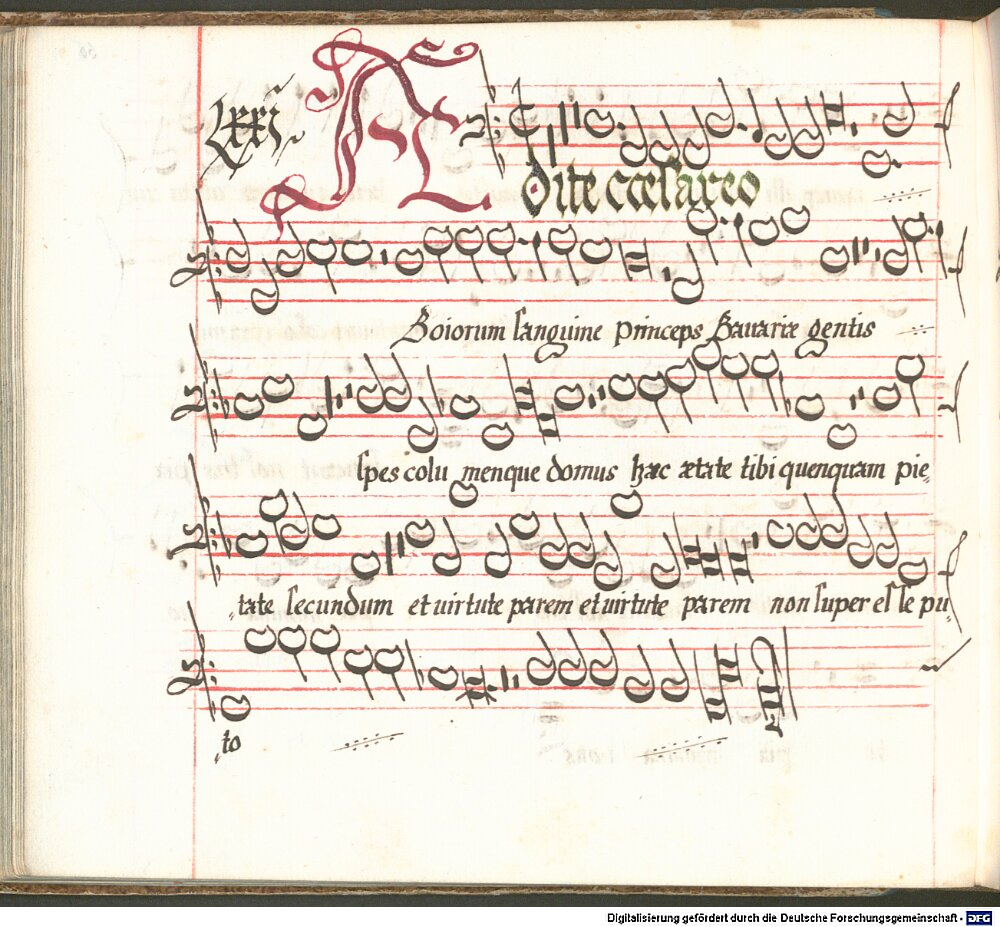 LXXI.
Aedite cæsareo
Boiorum sanguine princeps Bavariæ gentis
spes colu menque domus hac ætate tibi quenquam pie„
„tate secundum et uirtute parem et uirtute parem non super es se pu„
„to
Digitalisierung gefördert durch die Deutsche Forschungsgemeinschaft - DFG